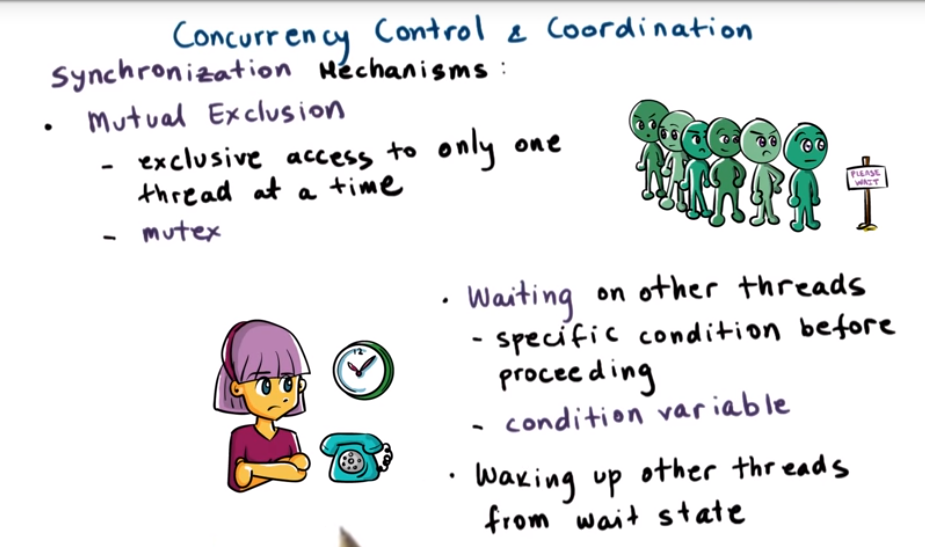 Concurrency Control & Coordination
Synchronization Mechanisms:
• Mutual Exclusion
- exclusive access to only one
thread at a time
- mutex
PLEASE
WAIT
• Waiting on other threads
- specific condition before
proceeding
- condition variable
12
• Waking up other threads
from wait state